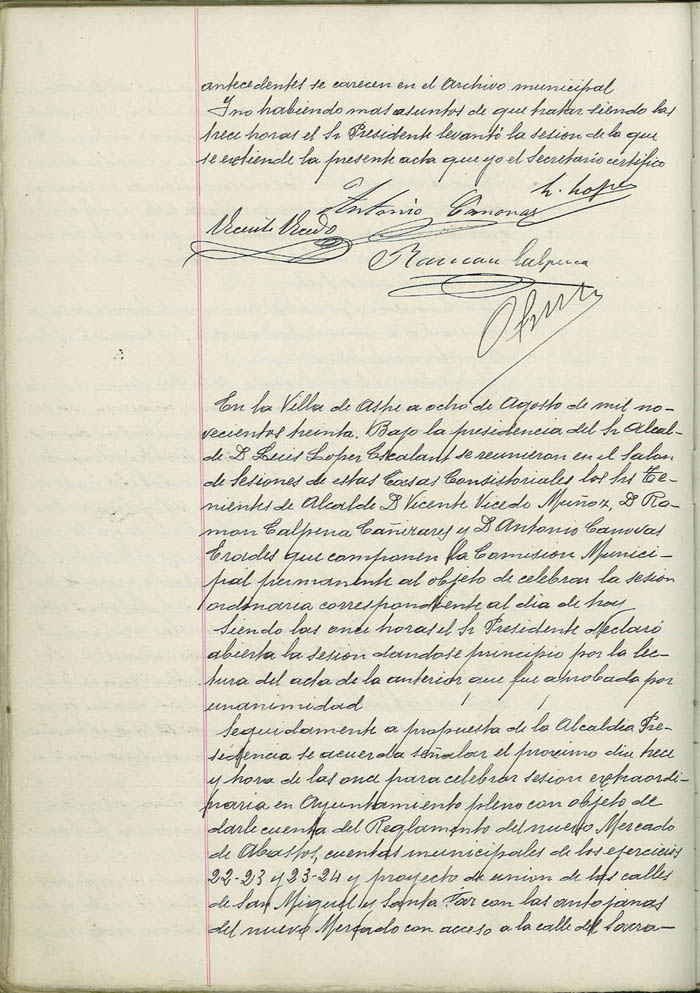 antecedentes se carecen en el Archivo municipal
Y no habiendo mas asuntos de que tratar siendo las
trece horas el Sr Presidente levantó la sesion de la que
se extiende la presente acta que yo el Secretario certifico
L. Lopez
Antonio Canovas
Vicente Vicedo
Ramon Calpena
En la Villa de Aspe a ocho de Agosto de mil no-
vecientos treinta. Bajo la presidencia del Sr Alcal-
de D. Luis Lopez Escalant se reunieron en el Salon
de Sesiones de estas Casas Consistoriales los Srs Te-
nientes de Alcalde D Vicente Vicedo Muñoz, D. Ra-
mon Calpena Cañizares y D Antonio Canovas
Erades que componen la Comision Munici-
pal permanente al objeto de celebrar la sesion
ordinaria correspondiente al dia de hoy
Siendo las once horas el Sr Presidente declaró
abierta la sesion dandose principio por la lec-
tura del acta de la anterior que fue aprobada por
unanimidad
Seguidamente a propuesta de la Alcaldia Pre-
sidencia se acuerda señalar el proximo dia trece
y hora de las once para celebrar sesion extraordi-
naria en Ayuntamiento pleno con objeto de
darle cuenta del Reglamento del nuevo Mercado
de Abastos, cuentas municipales de los ejercicios
22-23 y 23-24 y proyecto de union de las calles
de San Miguel y Santa Faz con las antojanas
del nuevo Mercado con acceso a la calle del Sagra-